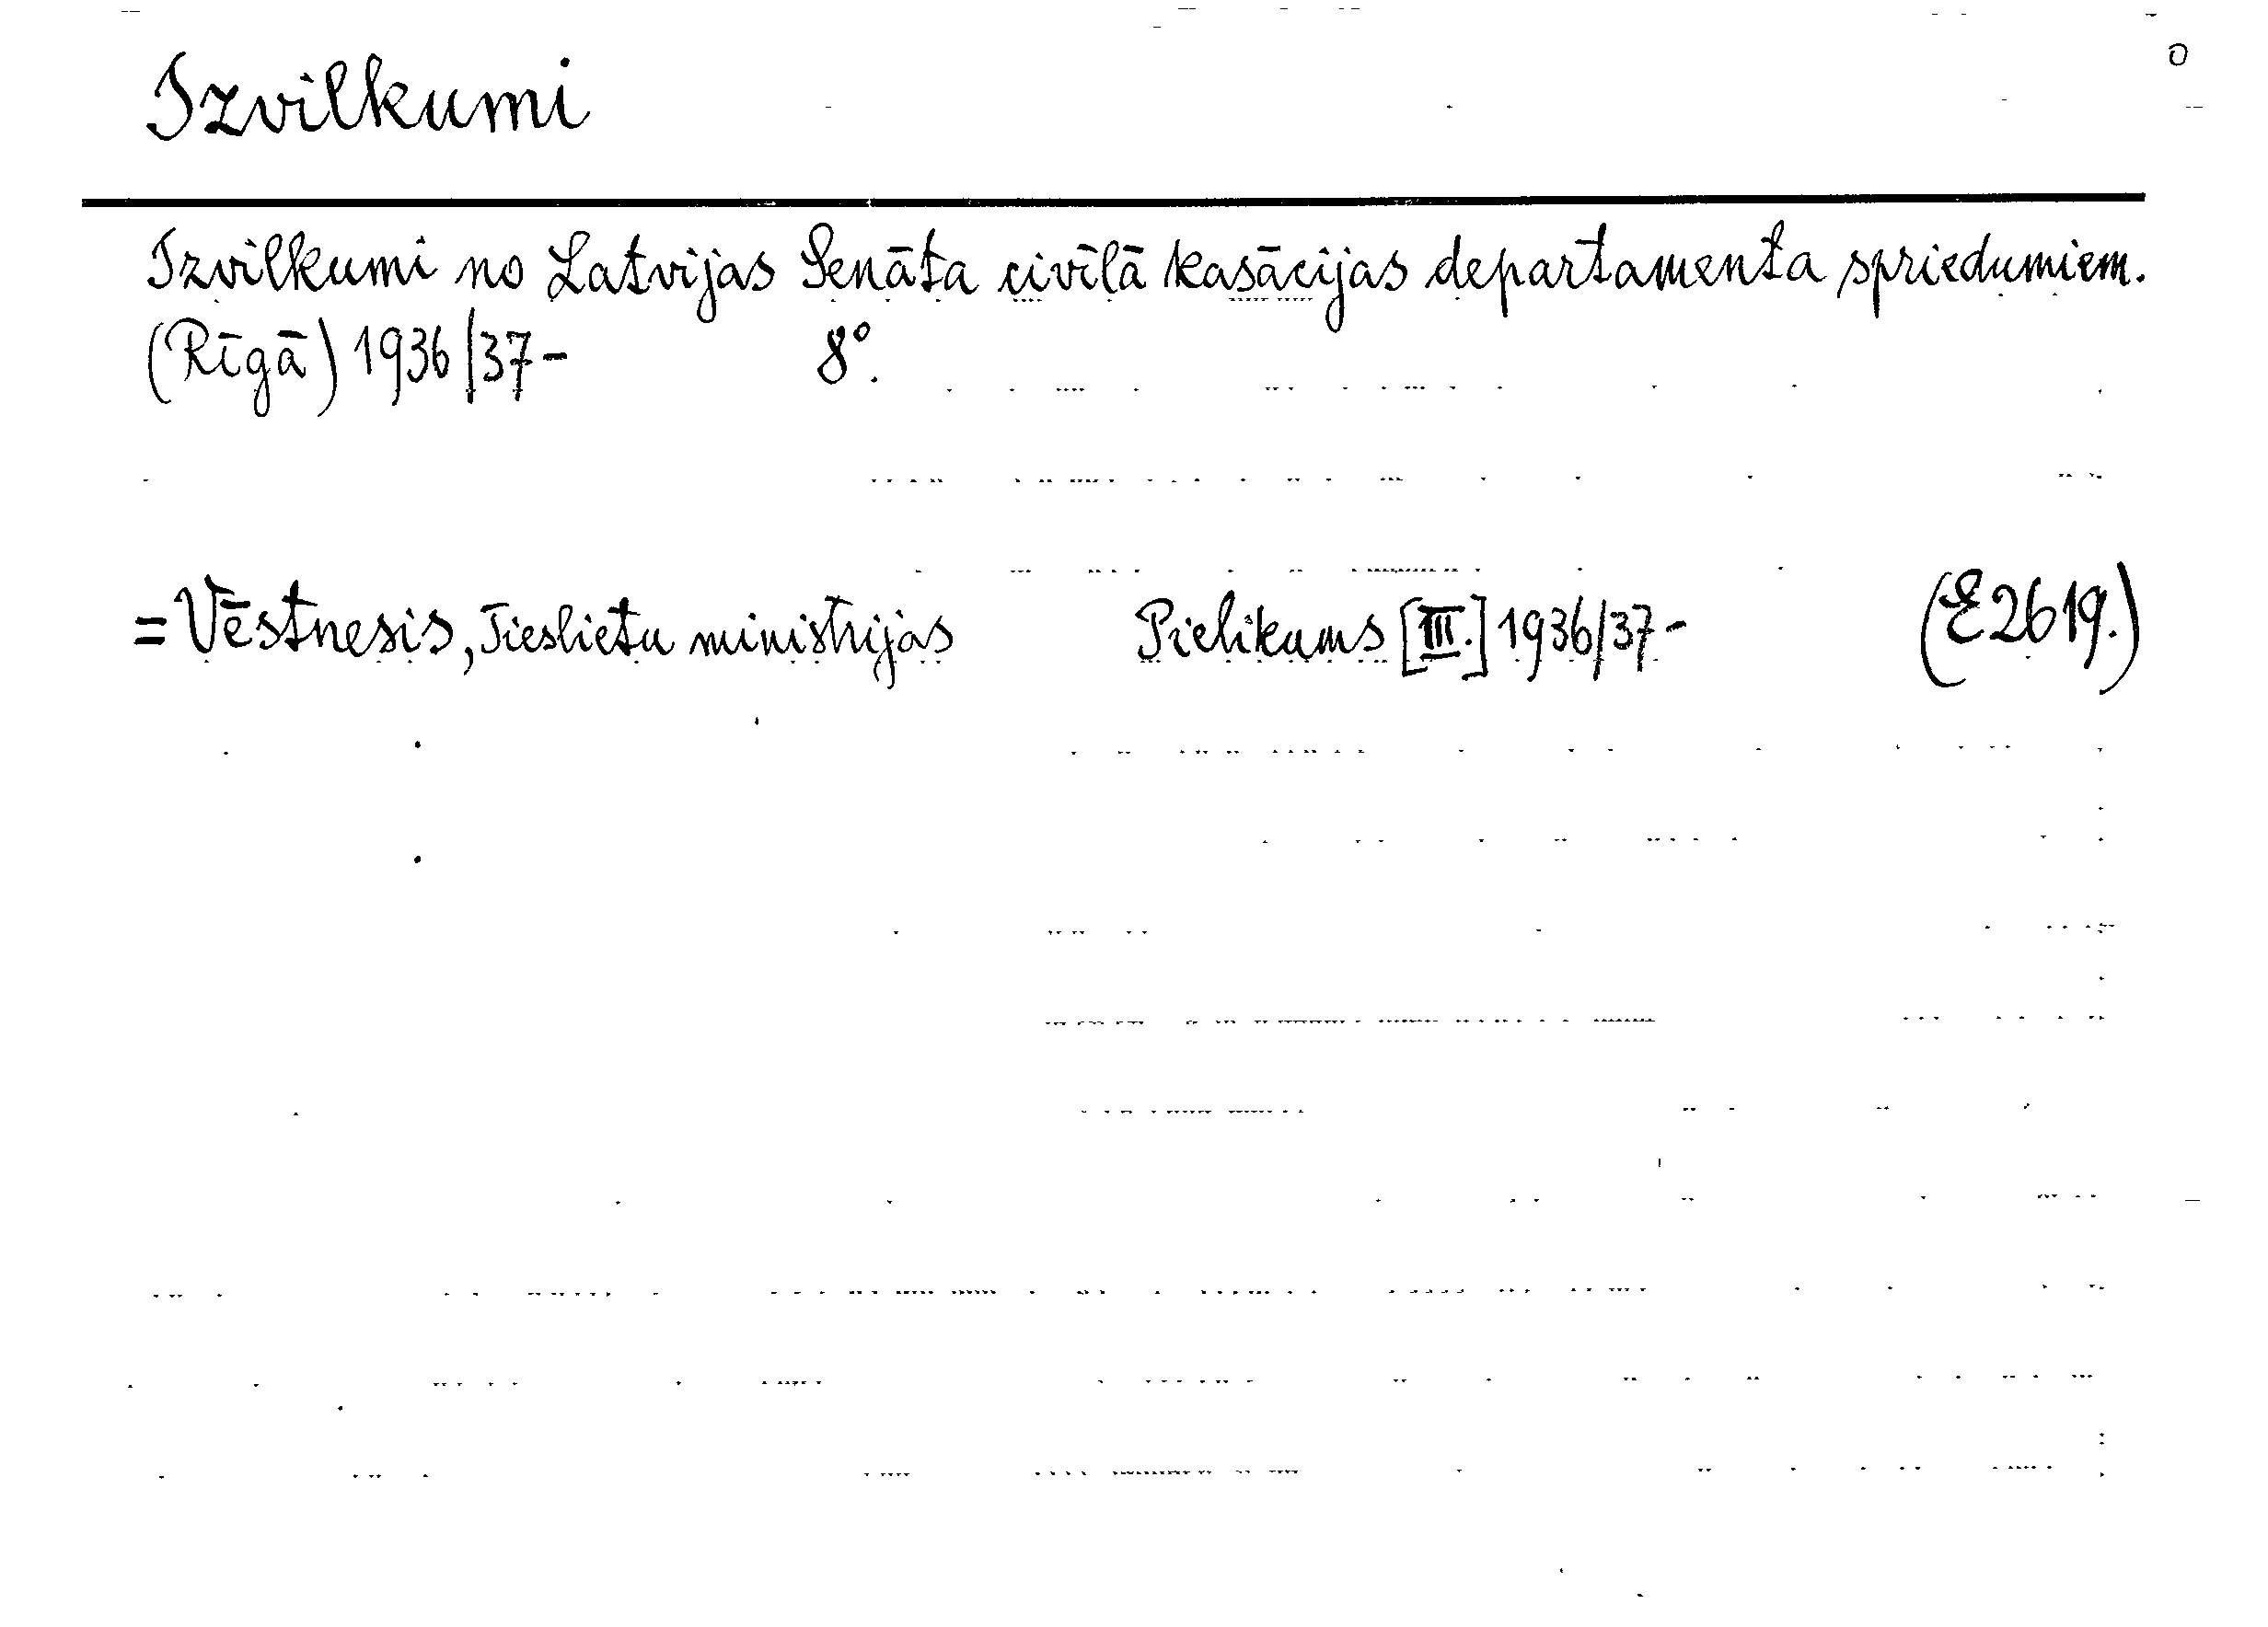 Izvilkumi
Izvilkumi no Latvijas Senāta civīlā kasācijas departamenta spriedumiem.
(Rīgā) 1936/37- 8°.
= Vēstnesis, Tieslietu ministrijas Pielikums [III.] 1936/37- (E2619.)